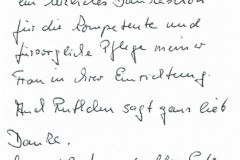 ein herzliches Dankeschön
für die kompetente und
fürsorgliche Pflege meiner
Frau in Ihrer Einrichtung.
Auch sagt ganz lieb
Danke.